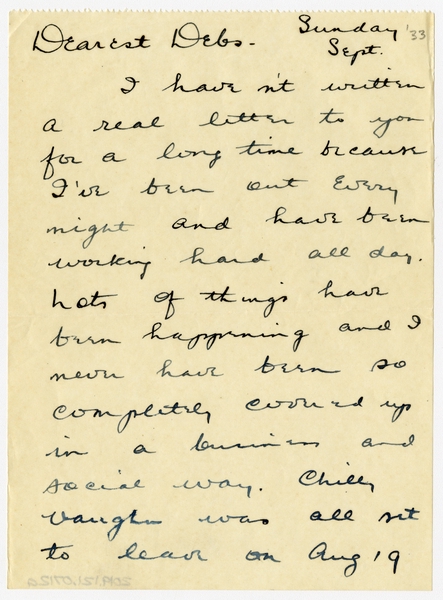 Sunday '33
Dearest Debs - Sept.
I haven't written
a real letter to you
for a long time because
I've been out Every
night and have been
working hard all day.
Lots of things have
been happening and I
never have been so
completely covered up
in a business and
social way. Chilly
Vaughn was all set
to leave on Aug 19